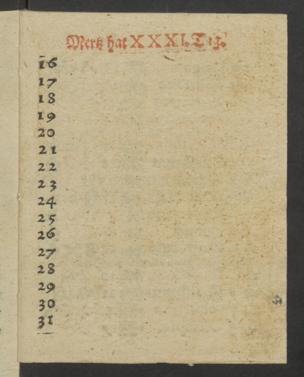 Mertz hat XXXI. Tag.
16
17
18
19
20
21
22
23
24
25
26
27
28
29
30
31